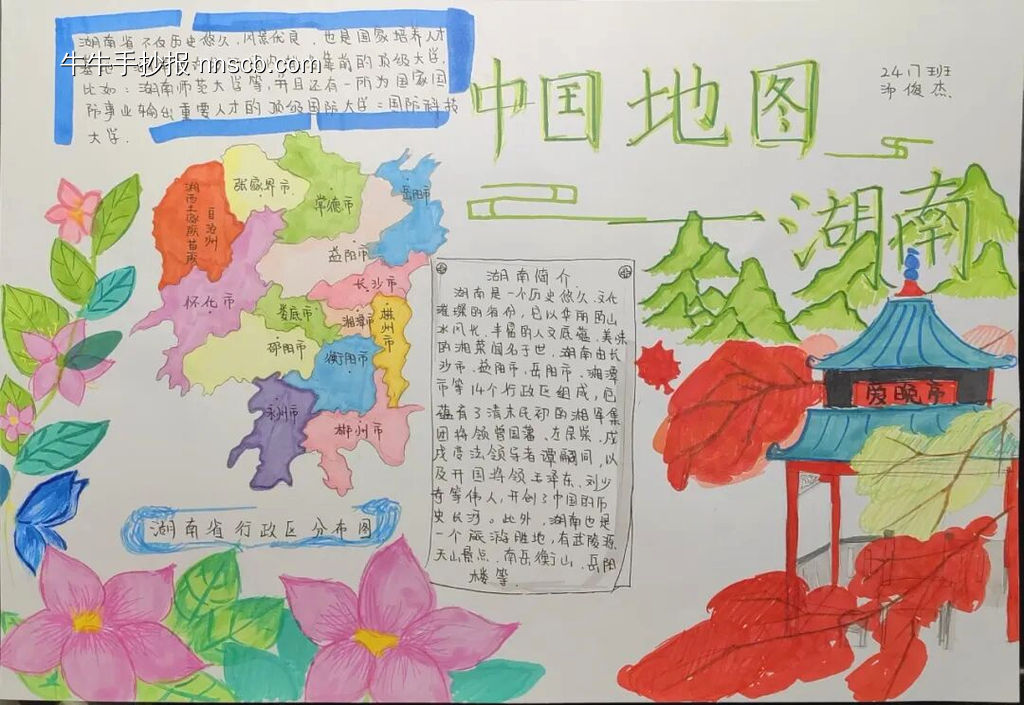 湖南省不仅历史悠久,风景优良,也是国家培养人才
牛牛手抄报 nnscb.com
靠前的顶级大学,
比如:湖南师范大学等,并且还有一所为国家国
防事业输出重要人才的顶级国防大学:国防科技
大学.
中国地图
2417班
俊杰
湖南
湘西土家族苗族
自治州
张家界市
常德市
岳阳市
益阳市
怀化市
长沙市
娄底市
湘潭市
株州市
邵阳市
衡阳市
永州市
郴州市
湖南省行政区分布图
湖南简介
湖南是一个历史悠久、文化
璀璨的省份,它以华丽的山
水风光、丰富的人文底蕴、美味
的湘菜闻名于世,湖南由长
沙市、益阳市、岳阳市、湘潭
市等14个行政区组成,它
蕴有了清末民初的湘军集
团将领曾国藩、左宗棠,戊
戌变法领导者谭嗣同,以
及开国将领毛泽东、刘少
奇等伟人,开创了中国的历
史长河。此外,湖南也是
一个旅游胜地,有武陵源
天山景点、南岳衡山、岳阳
楼等.
爱晚市